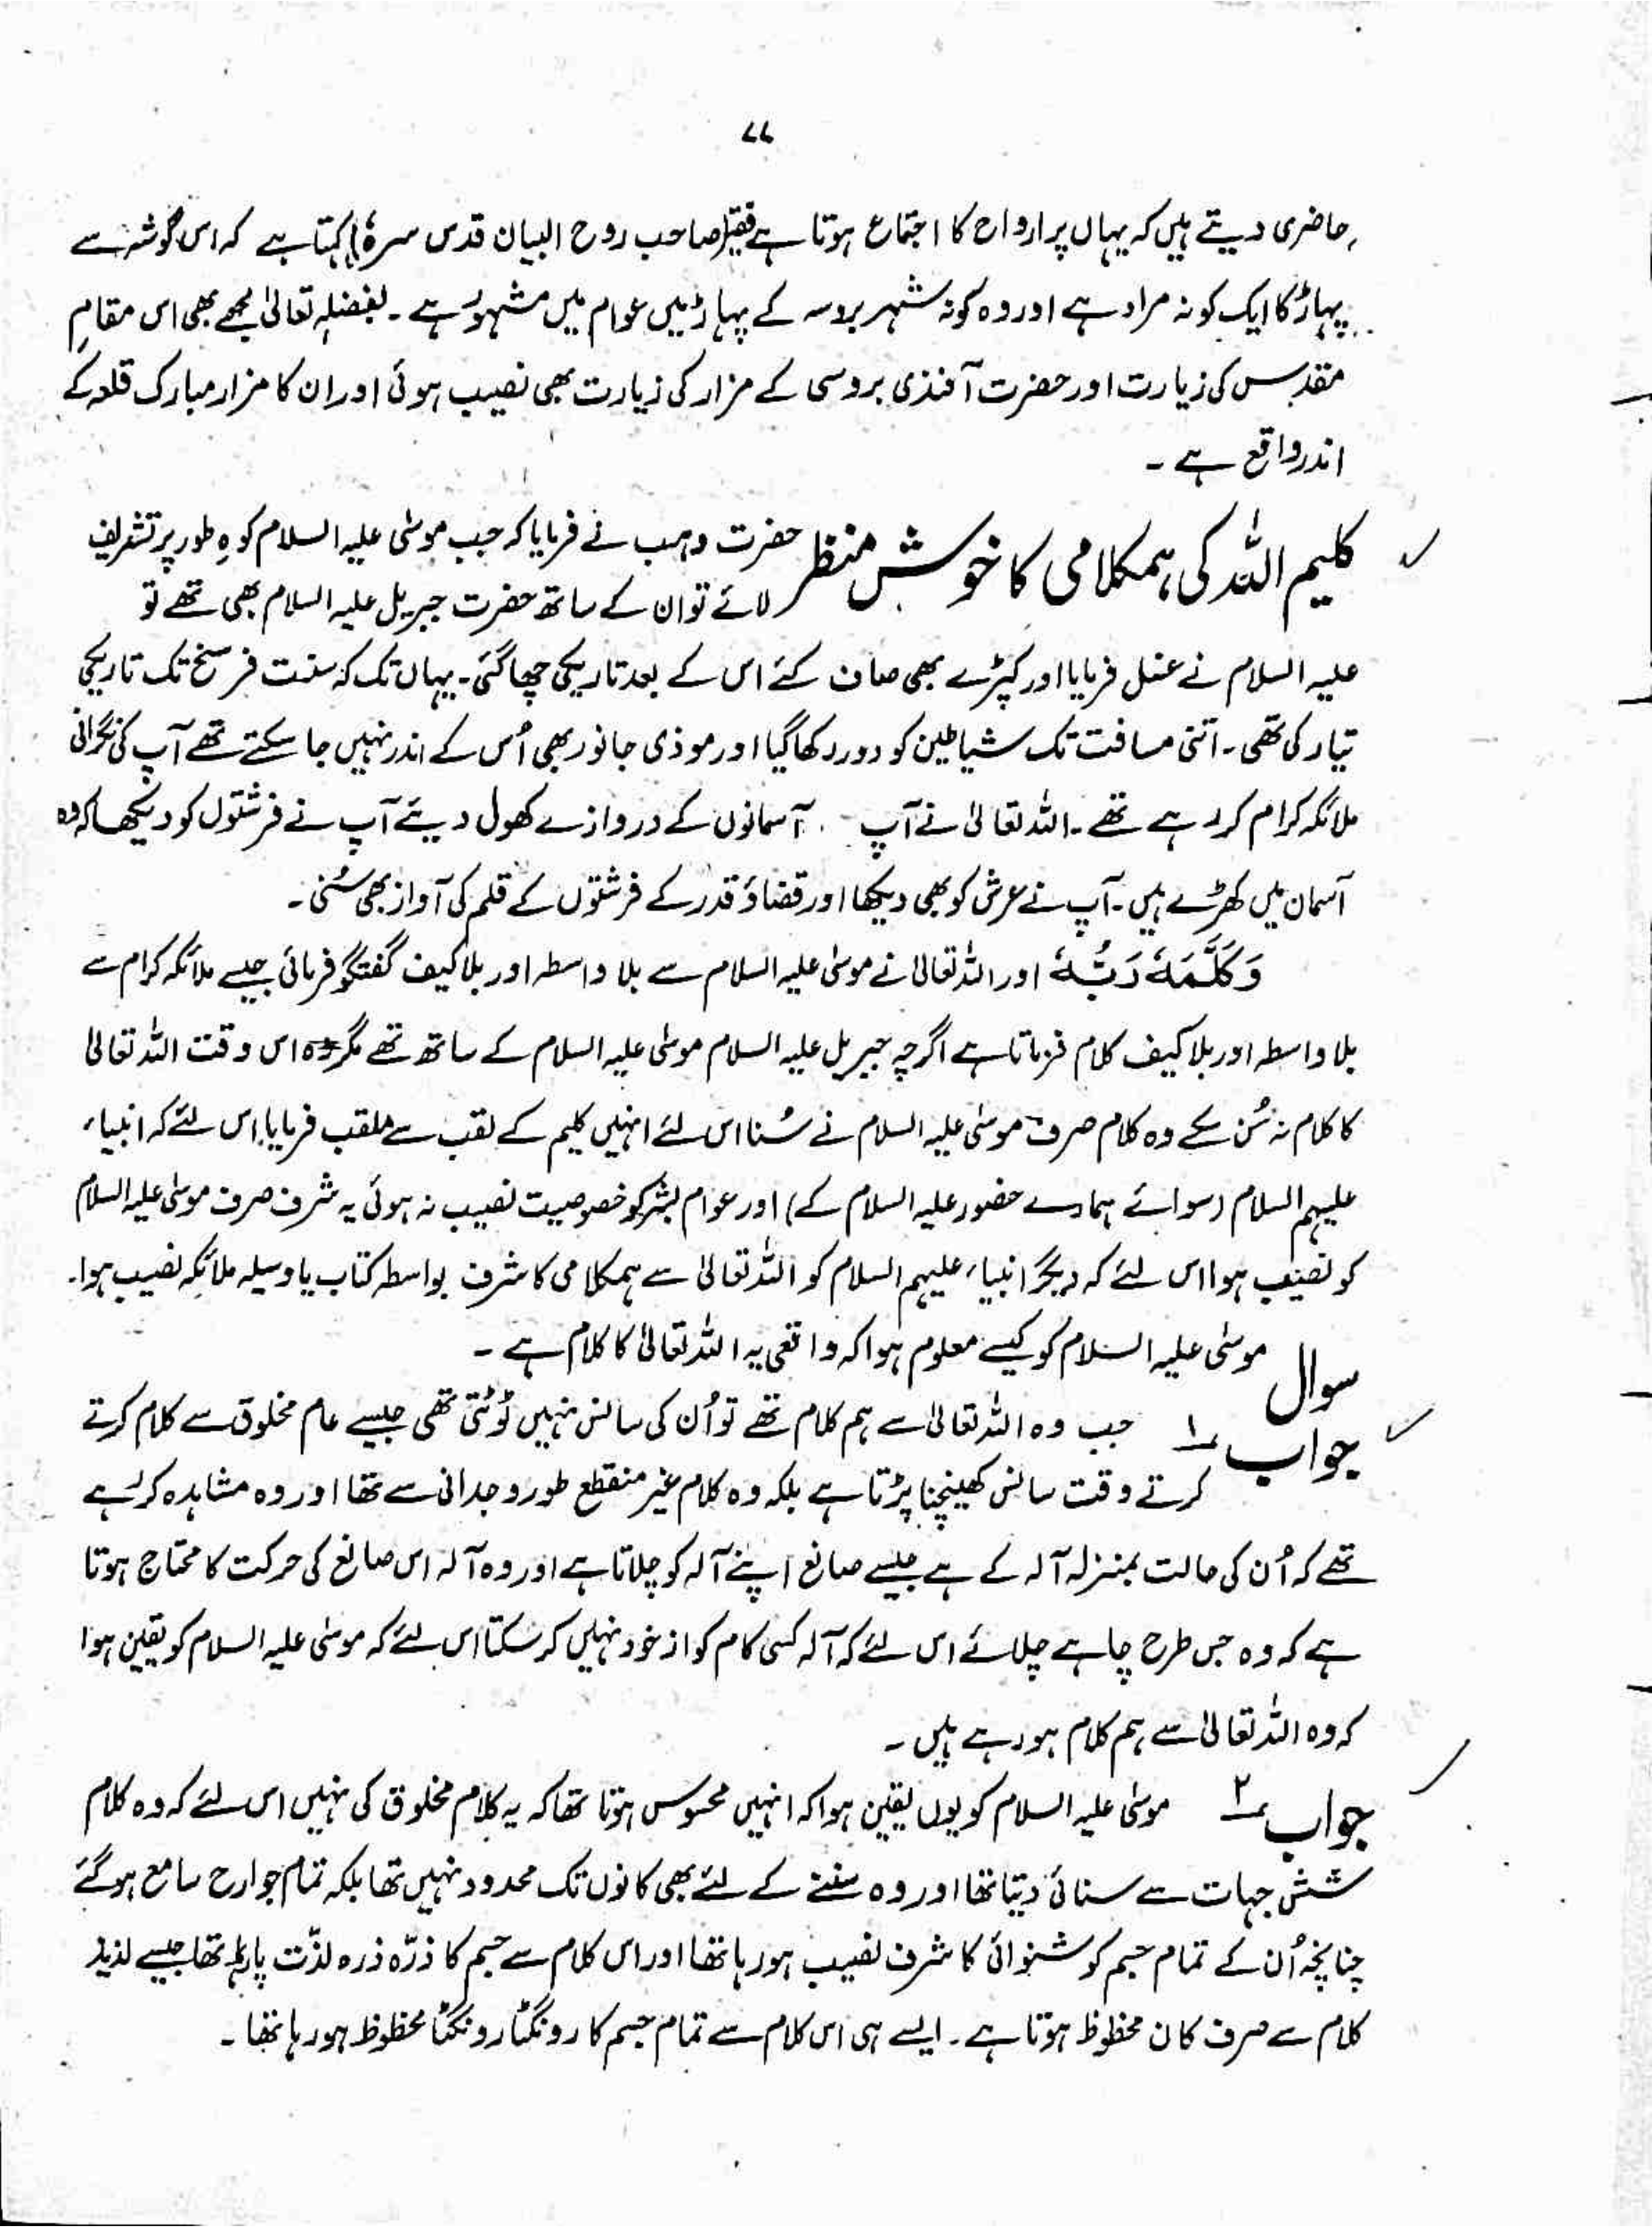 ۷۷
حاضری دیتے ہیں کہ یہاں پر ارواح کا اجتماع ہوتا ہے فقیر (صاحب روح البیان قدس سرہٗ) کہتا ہے کہ اس گوشہ سے
پہاڑ کا ایک کونہ مراد ہے اور وہ کونہ شہر بروسہ کے پہاڑ میں عوام میں مشہور ہے ۔ بفضلہٖ تعالیٰ مجھے بھی اس مقامِ
مقدس کی زیارت اور حضرت آفندی بروسی کے مزار کی زیارت بھی نصیب ہوئی اور ان کا مزار مبارک قلعہ کے
اندر واقع ہے ۔
کلیم اللہ کی ہمکلامی کا خوش منظر حضرت وہب نے فرمایا کہ جب موسٰی علیہ السلام کوہِ طور پر تشریف
لائے تو ان کے ساتھ حضرت جبریل علیہ السلام بھی تھے تو
علیہ السلام نے غسل فرمایا اور کپڑے بھی صاف کئے اس کے بعد تاریکی چھا گئی ۔ یہاں تک کہ سات فرسخ تک تاریکی
تیار کی تھی ۔ اتنی مسافت تک شیاطین کو دور رکھا گیا اور موذی جانور بھی اُس کے اندر نہیں جا سکتے تھے آپ کی نگرانی
ملائکہ کرام کر رہے تھے ۔ اللہ تعالیٰ نے آپ آسمانوں کے دروازے کھول دیئے آپ نے فرشتوں کو دیکھا کہ وہ
آسمان میں کھڑے ہیں ۔ آپ نے عرش کو بھی دیکھا اور قضاؤ قدر کے فرشتوں کے قلم کی آواز بھی سُنی ۔
وَكَلَّمَهٗ رَبُّهٗ اور اللہ تعالیٰ نے موسٰی علیہ السلام سے بلا واسطہ اور بلا کیف گفتگو فرمائی جیسے ملائکہ کرام سے
بلا واسطہ اور بلا کیف کلام فرماتا ہے اگرچہ جبریل علیہ السلام موسٰی علیہ السلام کے ساتھ تھے مگر وہ اس وقت اللہ تعالیٰ
کا کلام نہ سُن سکے وہ کلام صرف موسٰی علیہ السلام نے سُنا اس لئے انہیں کلیم کے لقب سے ملقب فرمایا اس لئے کہ انبیاء
علیہم السلام (سوائے ہمارے حضور علیہ السلام کے) اور عوام بشر کو خصوصیت نصیب نہ ہوئی یہ شرف صرف موسٰی علیہ السلام
کو نصیب ہوا اس لئے کہ دیگر انبیاء علیہم السلام کو اللہ تعالیٰ سے ہمکلامی کا شرف بواسطہ کتاب یا وسیلہ ملائکہ نصیب ہوا ۔
سوال موسٰی علیہ السلام کو کیسے معلوم ہوا کہ واقعی یہ اللہ تعالیٰ کا کلام ہے ۔
جواب ۱ جب وہ اللہ تعالیٰ سے ہم کلام تھے تو اُن کی سانس نہیں ٹوٹتی تھی جیسے عام مخلوق سے کلام کرتے
کرتے وقت سانس کھینچنا پڑتا ہے بلکہ وہ کلام غیر منقطع طور وجدانی سے تھا اور وہ مشاہدہ کر رہے
تھے کہ اُن کی حالت بمنزلہ آلہ کے ہے جیسے صانع اپنے آلہ کو چلاتا ہے اور وہ آلہ اس صانع کی حرکت کا محتاج ہوتا
ہے کہ وہ جس طرح چاہے چلائے اس لئے کہ آلہ کسی کام کو از خود نہیں کر سکتا اس لئے کہ موسٰی علیہ السلام کو یقین ہوا
کہ وہ اللہ تعالیٰ سے ہم کلام ہو رہے ہیں ۔
جواب ۲ موسٰی علیہ السلام کو یوں یقین ہوا کہ انہیں محسوس ہوتا تھا کہ یہ کلام مخلوق کی نہیں اس لئے کہ وہ کلام
شش جہات سے سنائی دیتا تھا اور وہ سننے کے لئے بھی کانوں تک محدود نہیں تھا بلکہ تمام جوارح سامع ہو گئے
چنانچہ اُن کے تمام جسم کو شنوائی کا شرف نصیب ہو رہا تھا اور اس کلام سے جسم کا ذرّہ ذرہ لذّت پا رہا تھا جیسے لذیذ
کلام سے صرف کان محظوظ ہوتا ہے ۔ ایسے ہی اس کلام سے تمام جسم کا رونگٹا رونگٹا محظوظ ہو رہا تھا ۔